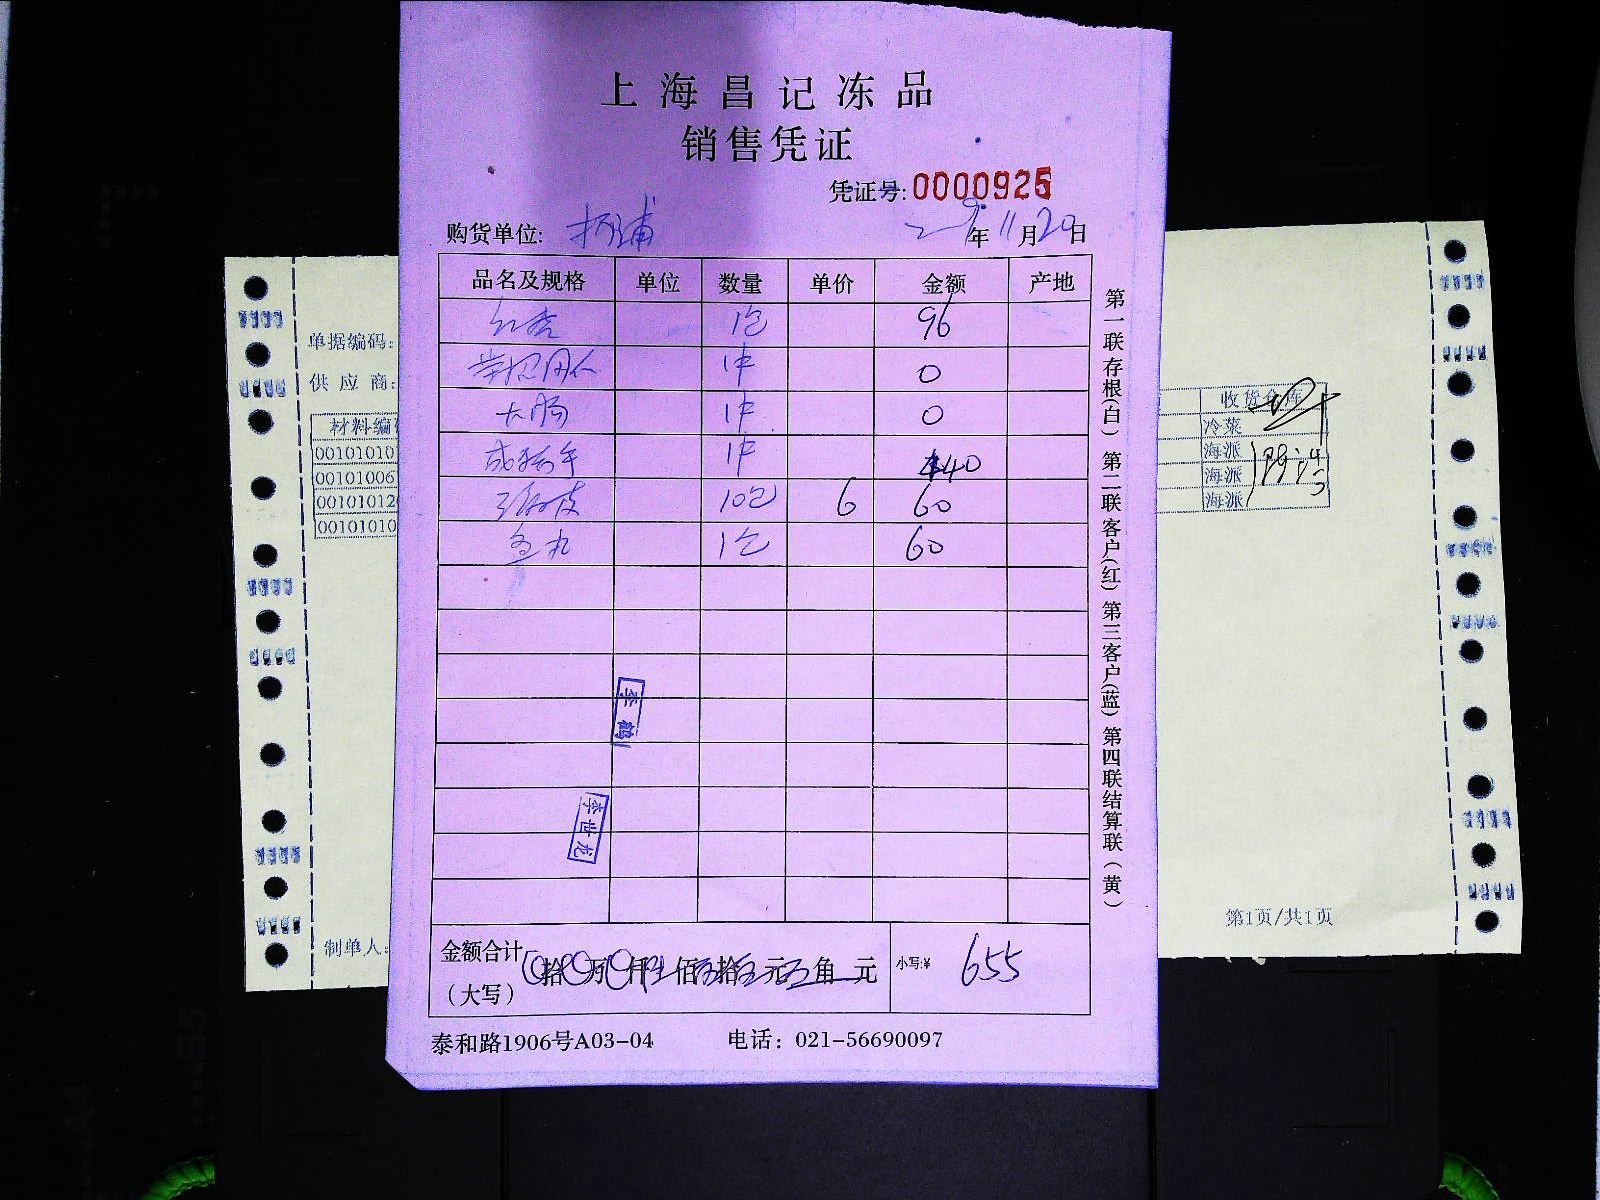 上海昌记冻品
销售凭证
凭证号: 0000925
购货单位:
年 11月20日
品名及规格 单位 数量 单价 金额 产地
1包 96
1件 0
大肠 1件 0
1件
10包 6 60
鱼丸 1包 60
李鹤
李世龙
金额合计 拾 万 仟 佰 拾 元 角 元
(大写)
小写:¥ 655
泰和路1906号A03-04 电话: 021-56690097
第一联存根(白) 第二联客户(红) 第三客户(蓝) 第四联结算联(黄)
单据编码:
供应商:
材料编
00101010
00101006
00101012
00101010
制单人:
收货仓库
冷菜
海派
海派
海派
第1页/共1页